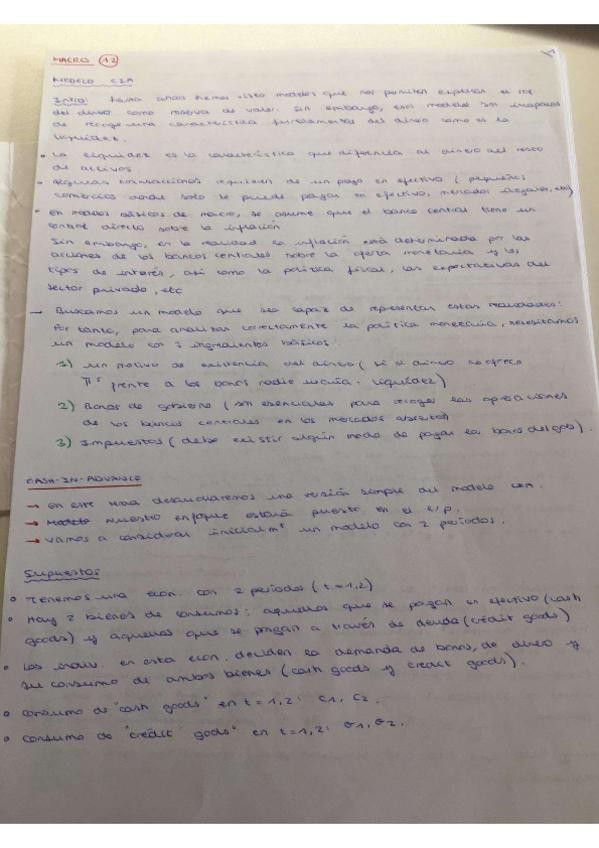 MACRO 12
MODELO CIA
Intro: hasta ahora hemos visto modelos que nos permiten expresar el rol
del dinero como reserva de valor. Sin embargo, esos modelos son incapaces
de recoger una característica fundamental del dinero como es la
liquidez.
• La liquidez es la característica que diferencia al dinero del resto
de activos.
• Algunas transacciones requieren de un pago en efectivo (pequeños
comercios donde solo se puede pagar en efectivo, mercados ilegales, etc)
• En modelos básicos de macro, se asume que el banco central tiene un
control directo sobre la inflación
Sin embargo, en la realidad la inflación está determinada por las
acciones de los bancos centrales sobre la oferta monetaria y los
tipos de interés, así como la política fiscal, las expectativas del
sector privado, etc
→ Buscamos un modelo que sea capaz de representar estas realidades:
Por tanto, para analizar correctamente la política monetaria, necesitamos
un modelo con 3 ingredientes básicos:
1) un motivo de existencia del dinero (si el dinero no ofrece
frente a los bonos nadie liquidez)
2) Bonos de gobierno (son esenciales para recoger las operaciones
de los bancos centrales en los mercados abiertos)
3) Impuestos (debe existir algún modo de pagar los bonos del gob).
CASH-IN-ADVANCE
→ en este tema desarrollaremos una versión simple del modelo
→ Modelo nuestro enfoque estará puesto en el c/p.
→ vamos a considerar inicialmt un modelo con 2 periodos.
Supuestos
• Tenemos una econ. con 2 periodos (t=1,2)
• Hay 2 bienes de consumos: aquellos que se pagan en efectivo (cash
goods) y aquellos que se pagan a través de deuda (credit goods)
• Los indiv. en esta econ. deciden la demanda de bonos, de dinero y
su consumo de ambos bienes (cash goods y credit goods).
• Consumo de "cash goods" en t=1,2: C1, C2.
• Consumo de "credit goods" en t=1,2: